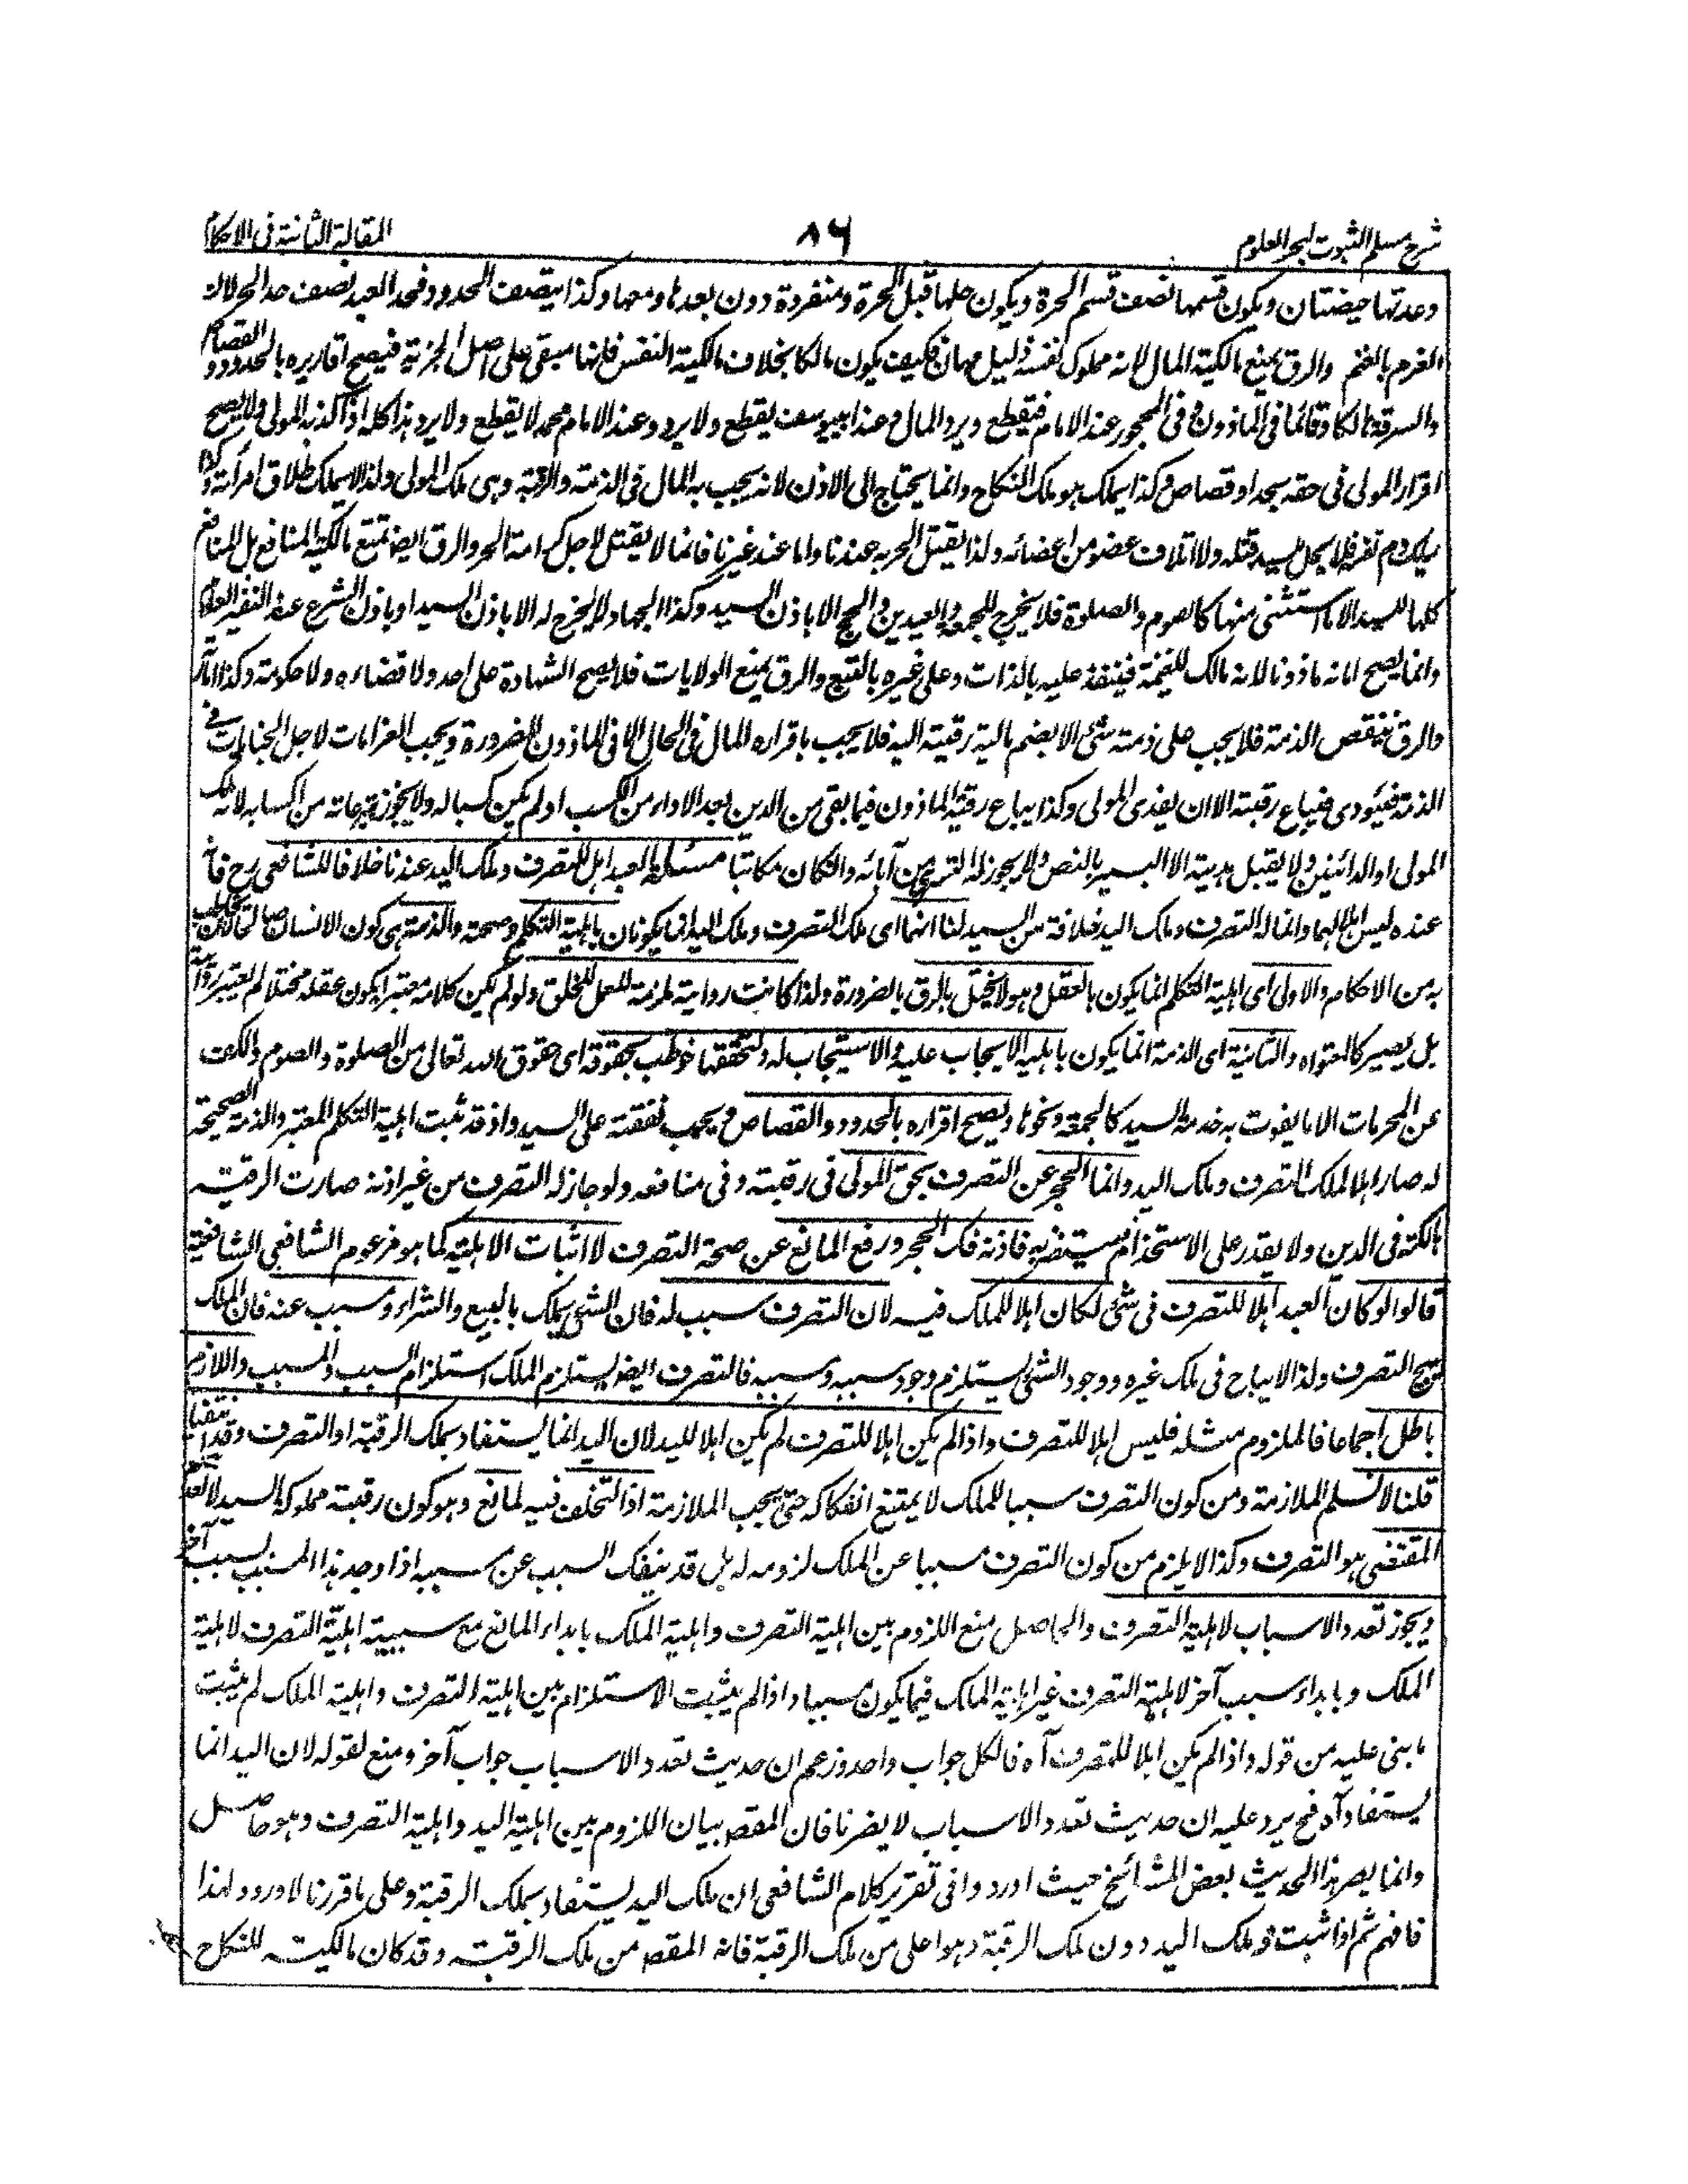 شرح مسلم الثبوت لبحر العلوم
٨٦
المقالة الثانية فى الاحكام
وعدتها حيضتان ويكون قسمها نصف قسم الحرة ويكون حلها قبل الحرة ومنفردة دون بعدها ومعها وكذا ينتصف الحدود فحد العبد نصف حد الحر لان
الغرم بالغنم والرق يمنع مالكية المال لانه مملوك كنفسه ذليل مهان فكيف يكون مالكا بخلاف مالكية النفس فانها مبقى على اصل الحرية فيصح اقاريره بالحدود والقصاص
والسرقة هالكا وقائما فى الماذون وفى المحجور عند الامام فيقطع ويرد المال وعند ابيوسف يقطع ولا يرد وعند الامام محمد لا يقطع ولا يرد هذا كله اذا كذبه المولى ولا يصح
اقرار المولى فى حقه بحد او قصاص وكذا يملك هو ملك النكاح وانما يحتاج الى الاذن لانه يجب به المال فى الذمة والرقبة وهى ملك المولى ولذا لا يملك طلاق امرأته وكذا
يملك دم نفسه فلا يحل للسيد قتله ولا اتلاف عضو من اعضائه ولذا يقتل الحر به عندنا واما عند غيرنا فانما لا يقتل لاجل كرامة الحر والرق ايضا تمنع مالكية المنافع بل المنافع
كلها للسيد الا ما استثنى منها كالصوم والصلوة فلا يخرج للجمعة والعيدين والحج الا باذن السيد وكذا الجهاد لا يخرج له الا باذن السيد او باذن الشرع عند النفير العام
وانما يصح امانه ماذونا لانه مالك للغنيمة فينفذ عليه بالذات وعلى غيره بالتبع والرق يمنع الولايات فلا يصح الشهادة على احد ولا قضاءه ولا حكومة وكذا
والرق ينقص الذمة فلا يجب على ذمته شئ الا بضم مالية رقبته اليه فلا يجب باقراره المال فى الحال الا فى الماذون للضرورة ويجب الغرامات لاجل الجنايات فى
الذمة فيؤدى فيباع رقبته الا ان يفدى المولى وكذا يباع رقبة الماذون فيما بقى من الدين بعد الاداء من الكسب او لم يكن كسبا له ولا يجوز تبرعاته من اكسابه لانه ملك
المولى او الدائنين ولا يقبل هدية الا اليسير بالنص ولا يجوز له التسرى من آبائه وان كان مكاتبا مسئلة العبد اهل للتصرف وملك اليد عندنا خلافا للشافعى رح فان
عنده ليس اهلا لهما وانما له التصرف وملك اليد خلافة من السيد لنا انهما اى ملك التصرف وملك اليد انما يكونان باهلية التكلم وصحته والذمة هى كون الانسان صالحا لان يخاطب
به من الاحكام والاولى اى اهلية التكلم انما يكون بالعقل وهو لا يختل بالرق بالضرورة ولذا كانت روايته ملزمة للعمل للخلق ولو لم يكن كلامه معتبرا يكون عقله مختلا لم يعتبر روايته
بل يصير كالمعتوه والثانية اى الذمة انما يكون باهلية الايجاب عليه والاستيجاب له ولتحققها خوطب بحقوقه اى حقوق الله تعالى من الصلوة والصوم والكف
عن المحرمات الا ما يفوت به خدمة السيد كالجمعة ونحوها ويصح اقراره بالحدود والقصاص ويجب نفقته على السيد واذ قد ثبت اهلية التكلم المعتبر والذمة الصحيحة
له صار اهلا لملك التصرف وملك اليد وانما الحجر عن التصرف بحق المولى فى رقبته وفى منافعه ولو جاز له التصرف من غير اذنه صارت الرقبة
هالكة فى الدين ولا يقدر على الاستخدام فيستضر به فاذنه فك الحجر ورفع المانع عن صحة التصرف لا اثبات الاهلية كما هو مزعوم الشافعى الشافعية
قالوا لو كان العبد اهلا للتصرف فى شئ لكان اهلا للملك فيه لان التصرف سبب له فان الشئ يملك بالبيع والشراء ومسبب عنه فان الملك
يبيح التصرف ولذا لا يباح فى ملك غيره ووجود الشئ يستلزم وجود سببه ومسببه فالتصرف ايضا يستلزم الملك استلزام السبب والمسبب واللازم
باطل اجماعا فالملزوم مثله فليس اهلا للتصرف واذا لم يكن اهلا للتصرف لم يكن اهلا لليد لان اليد انما يستفاد بملك الرقبة او التصرف وقد انتفيا
قلنا لا نسلم الملازمة ومن كون التصرف سببا للملك لا يمتنع انفكاكه حتى يجب الملازمة اذ التخلف فيه لمانع وهو كون رقبته مملوكة للسيد لا لعدم
المقتضى هو التصرف وكذا لا يلزم من كون التصرف مسببا عن الملك لزومه له بل قد ينفك السبب عن مسببه اذا وجد هذا المسبب بسبب آخر
ويجوز تعدد الاسباب لاهلية التصرف والحاصل منع اللزوم بين اهلية التصرف واهلية الملك بابداء المانع مع سببية اهلية التصرف لاهلية
الملك وبابداء سبب آخر لاهلية التصرف غير اهلية الملك فيما يكون مسببا واذا لم يثبت الاستلزام بين اهلية التصرف واهلية الملك لم يثبت
ما بنى عليه من قوله واذا لم يكن اهلا للتصرف آه فالكل جواب واحد وزعم ان حديث تعدد الاسباب جواب آخر ومنع لقوله لان اليد انما
يستفاد آه فح يرد عليه ان حديث تعدد الاسباب لا يضرنا فان المقصد بيان اللزوم بين اهلية اليد واهلية التصرف وهو حاصل
وانما يصر هذا الحديث بعض المشائخ حيث اوردوا فى تقرير كلام الشافعى ان ملك اليد يستفاد بملك الرقبة وعلى ما قررنا لا ورود لهذا
فافهم ثم اذا ثبت له ملك اليد دون ملك الرقبة وهو اعلى من ملك الرقبة فانه المقصد من ملك الرقبة وقد كان مالكيته للنكاح